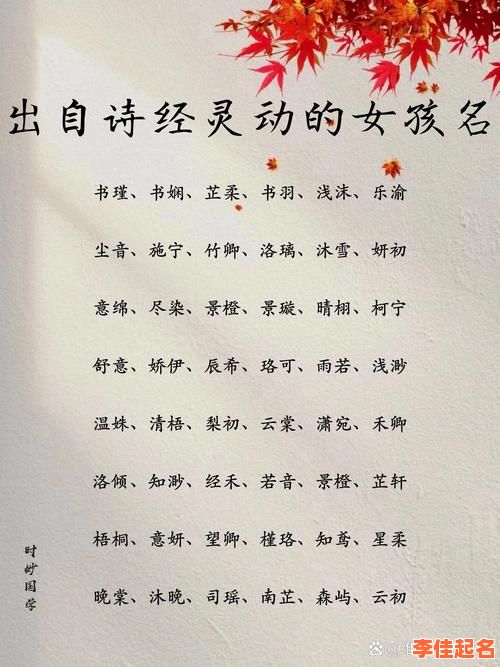 出自诗经灵动的女孩名
书瑾、书娴、芷柔、书羽、浅沫、乐渝
尘音、施宁、竹卿、洛璃、沐雪、妍初
意绵、尽染、景橙、景璇、晴栩、柯宁
舒意、娇伊、辰希、珞可、雨若、浅渺
温姝、清梧、梨初、云棠、潇宛、禾卿
洛倾、知渺、经禾、若音、景橙、芷轩
梧桐、意妍、望卿、槿珞、知鸢、星柔
晚棠、沐晚、司瑶、南芷、森屿、云初
时妙国学
李佳起名